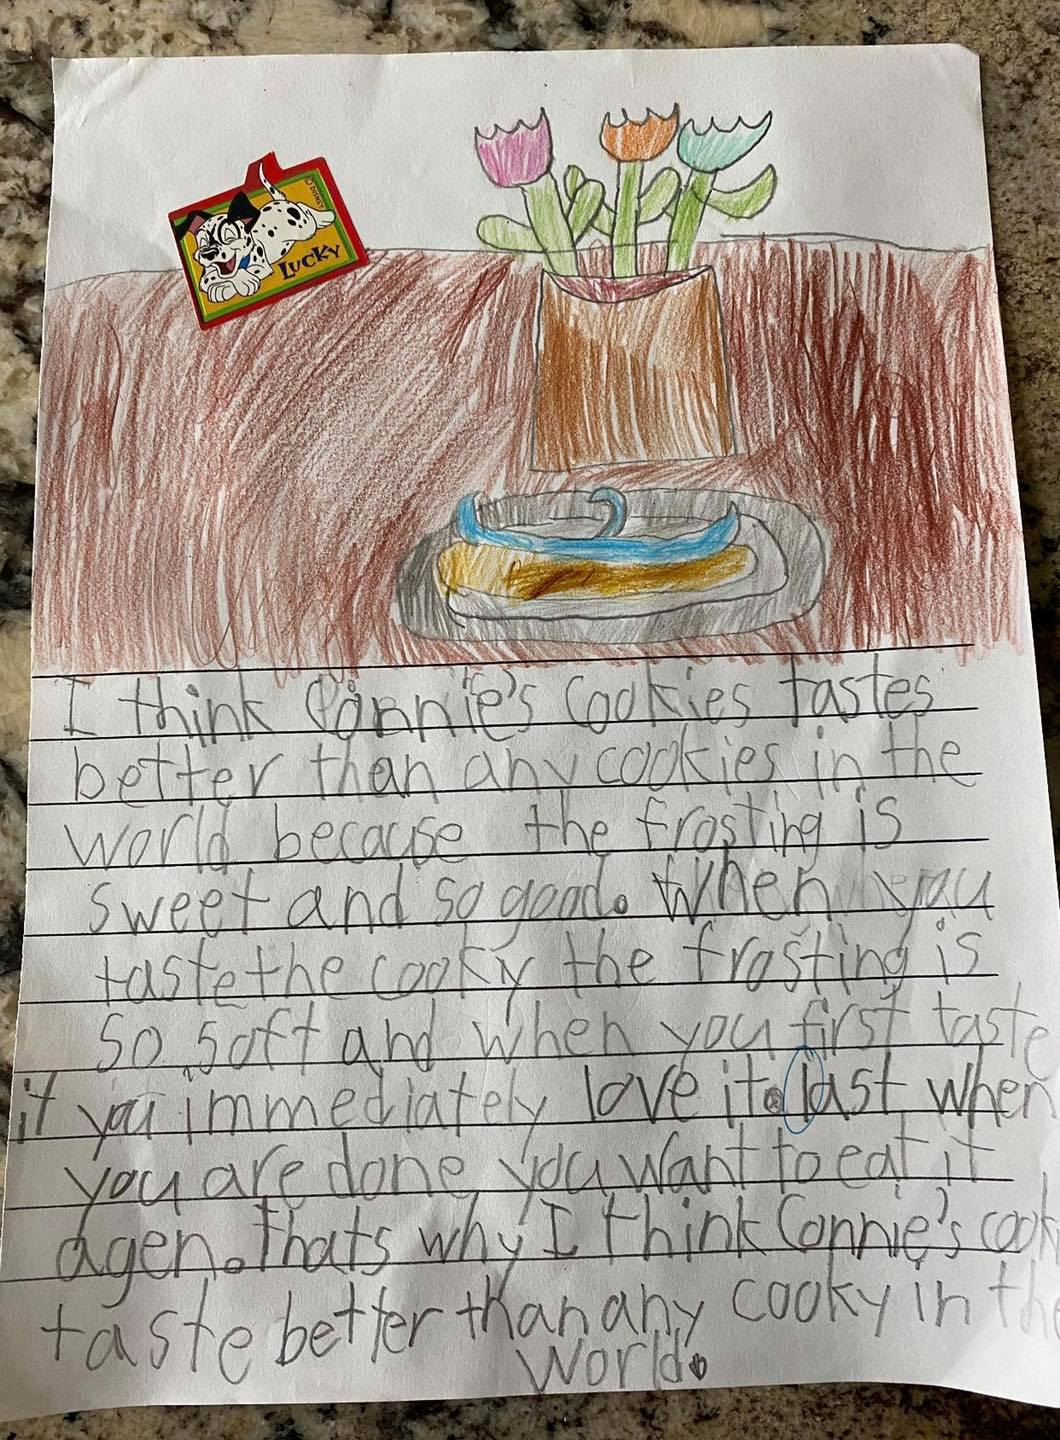 © DISNEY
LUCKY
I think Connie's Cookies tastes
better than any cookies in the
world because the frosting is
sweet and so good. When you
taste the cooky the frosting is
so soft and when you first taste
it you immediately love it. last when
you are done you want to eat it
agen. thats why I think Connie's cook
taste better than any cooky in the
world.